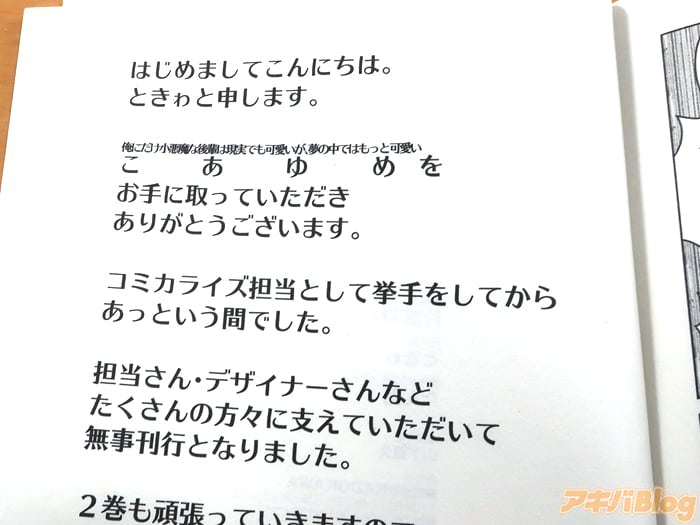 はじめましてこんにちは。
ときゎと申します。
俺にだけ小悪魔な後輩は現実でも可愛いが、夢の中ではもっと可愛い
こあゆめを
お手に取っていただき
ありがとうございます。
コミカライズ担当として挙手をしてから
あっという間でした。
担当さん・デザイナーさんなど
たくさんの方々に支えていただいて
無事刊行となりました。
2巻も頑張っていきますので
アキバBlog